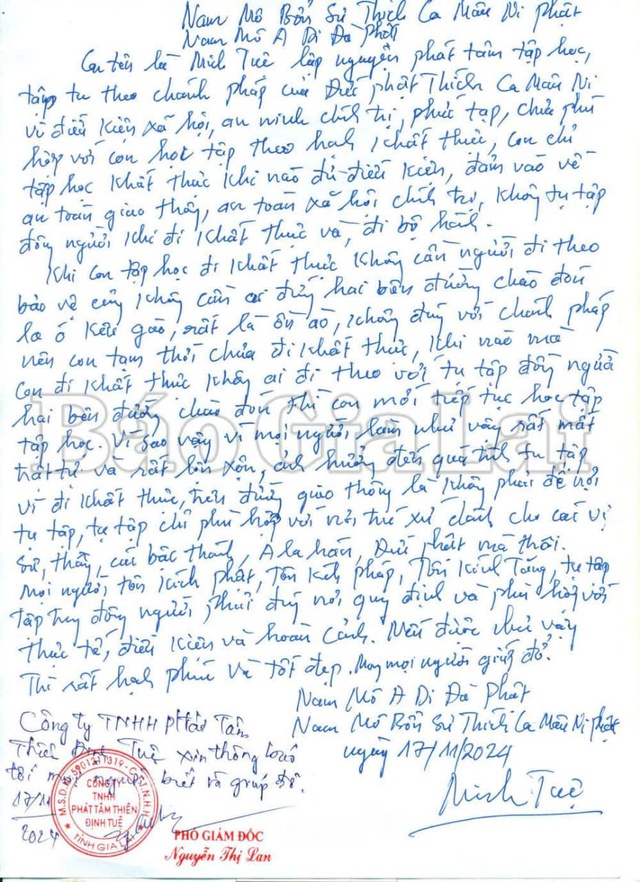 Nam Mô Bổn Sư Thích Ca Mâu Ni Phật
Nam Mô A Di Đà Phật
Con tên là Minh Tuệ lập nguyện phát tâm tập học,
tập tu theo chánh pháp của Đức Phật Thích Ca Mâu Ni
vì điều kiện xã hội, an ninh chính trị, phức tạp, chưa phù
hợp với con học tập theo hạnh khất thực, con chỉ
tập học khất thực khi nào đủ điều kiện, đảm bảo về
an toàn giao thông, an toàn xã hội chính trị, không tụ tập
đông người khi đi khất thực và, đi bộ hành.
Khi con tập học đi khất thực không cần người đi theo
bảo vệ cũng không cần ai đứng hai bên đường chào đón
la ó kêu gào, rất là ồn ào, không đúng với chánh pháp
nên con tạm thời chưa đi khất thực, khi nào mà
con đi khất thực không ai đi theo với tụ tập đông người
hai bên đường chào đón thì con mới tiếp tục học tập
tập học. Vì sao vậy vì mọi người làm như vậy rất mất
trật tự và rất lộn xộn, ảnh hưởng đến quá trình tu tập
vì đi khất thực, trên đường giao thông là không phải để nơi
tụ tập, tụ tập chỉ phù hợp với nơi trú xứ dành cho các vị
sư, thầy, các bậc thánh, A la hán, Đức Phật mà thôi.
Mọi người tôn kính Phật, Tôn kính pháp, Tôn kính Tăng, tụ tập
tập trung đông người phải đúng nơi quy định và phù hợp với
thực tế, điều kiện và hoàn cảnh. Nếu được như vậy
Thì rất hạnh phúc và tốt đẹp. Mong mọi người giúp đỡ.
Nam Mô A Di Đà Phật
Nam Mô Bổn Sư Thích Ca Mâu Ni Phật
ngày 17/11/2024
Minh Tuệ
Công ty TNHH Phát Tâm
Thiền Định Tuệ xin thông báo
tới mọi người biết và giúp đỡ.
17/11
2024
CÔNG TY
TNHH
PHÁT TÂM THIỀN
ĐỊNH TUỆ
TỈNH GIA LAI
PHÓ GIÁM ĐỐC
Nguyễn Thị Lan
Báo Gia Lai